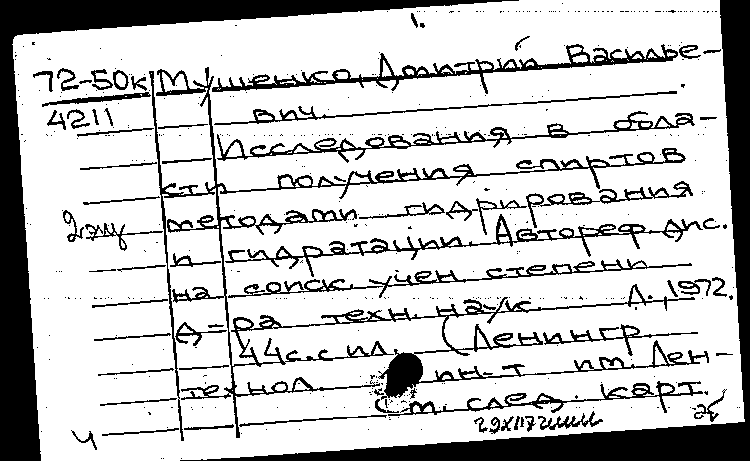 1.
72-50к Мушенко, Дмитрий Василье-
4211 вич.
Исследования в обла-
сти получения спиртов
2 экз методами гидрирования
и гидратации. Автореф. дис.
на соиск. учен. степени
д-ра техн. наук. Л., 1972.
44с. с ил. (Ленингр.
технол. ин-т им. Лен-
См. след. карт.
Ч